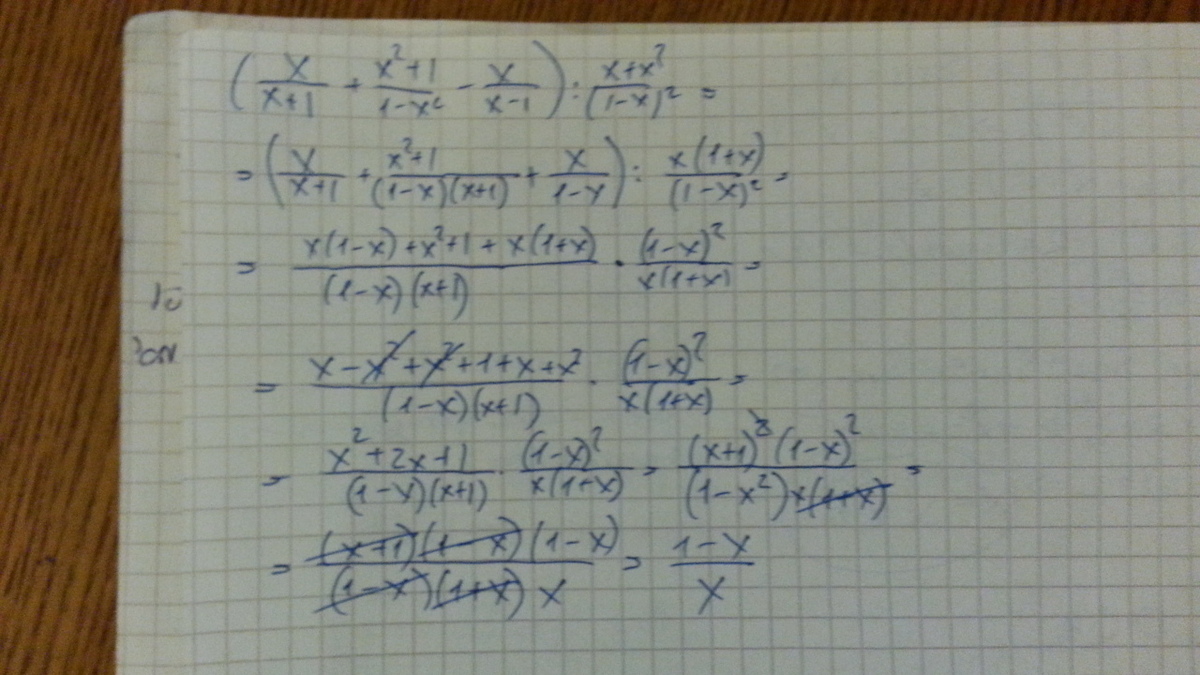 (x/(x+1) + (x²+1)/(1-x²) - x/(x-1)) : (x+x²)/(1-x)² =
= (x/(x+1) + (x²+1)/((1-x)(x+1)) + x/(1-x)) : x(1+x)/(1-x)² =
= (x(1-x)+x²+1+x(1+x))/((1-x)(x+1)) · (1-x)²/(x(1+x)) =
= (x-x²+x²+1+x+x²)/((1-x)(x+1)) · (1-x)²/(x(1+x)) =
= (x²+2x+1)/((1-x)(x+1)) · (1-x)²/(x(1+x)) = (x+1)²(1-x)²/((1-x²)x(1+x)) =
= (x+1)(1-x)(1-x)/((1-x)(1+x)x) = (1-x)/x